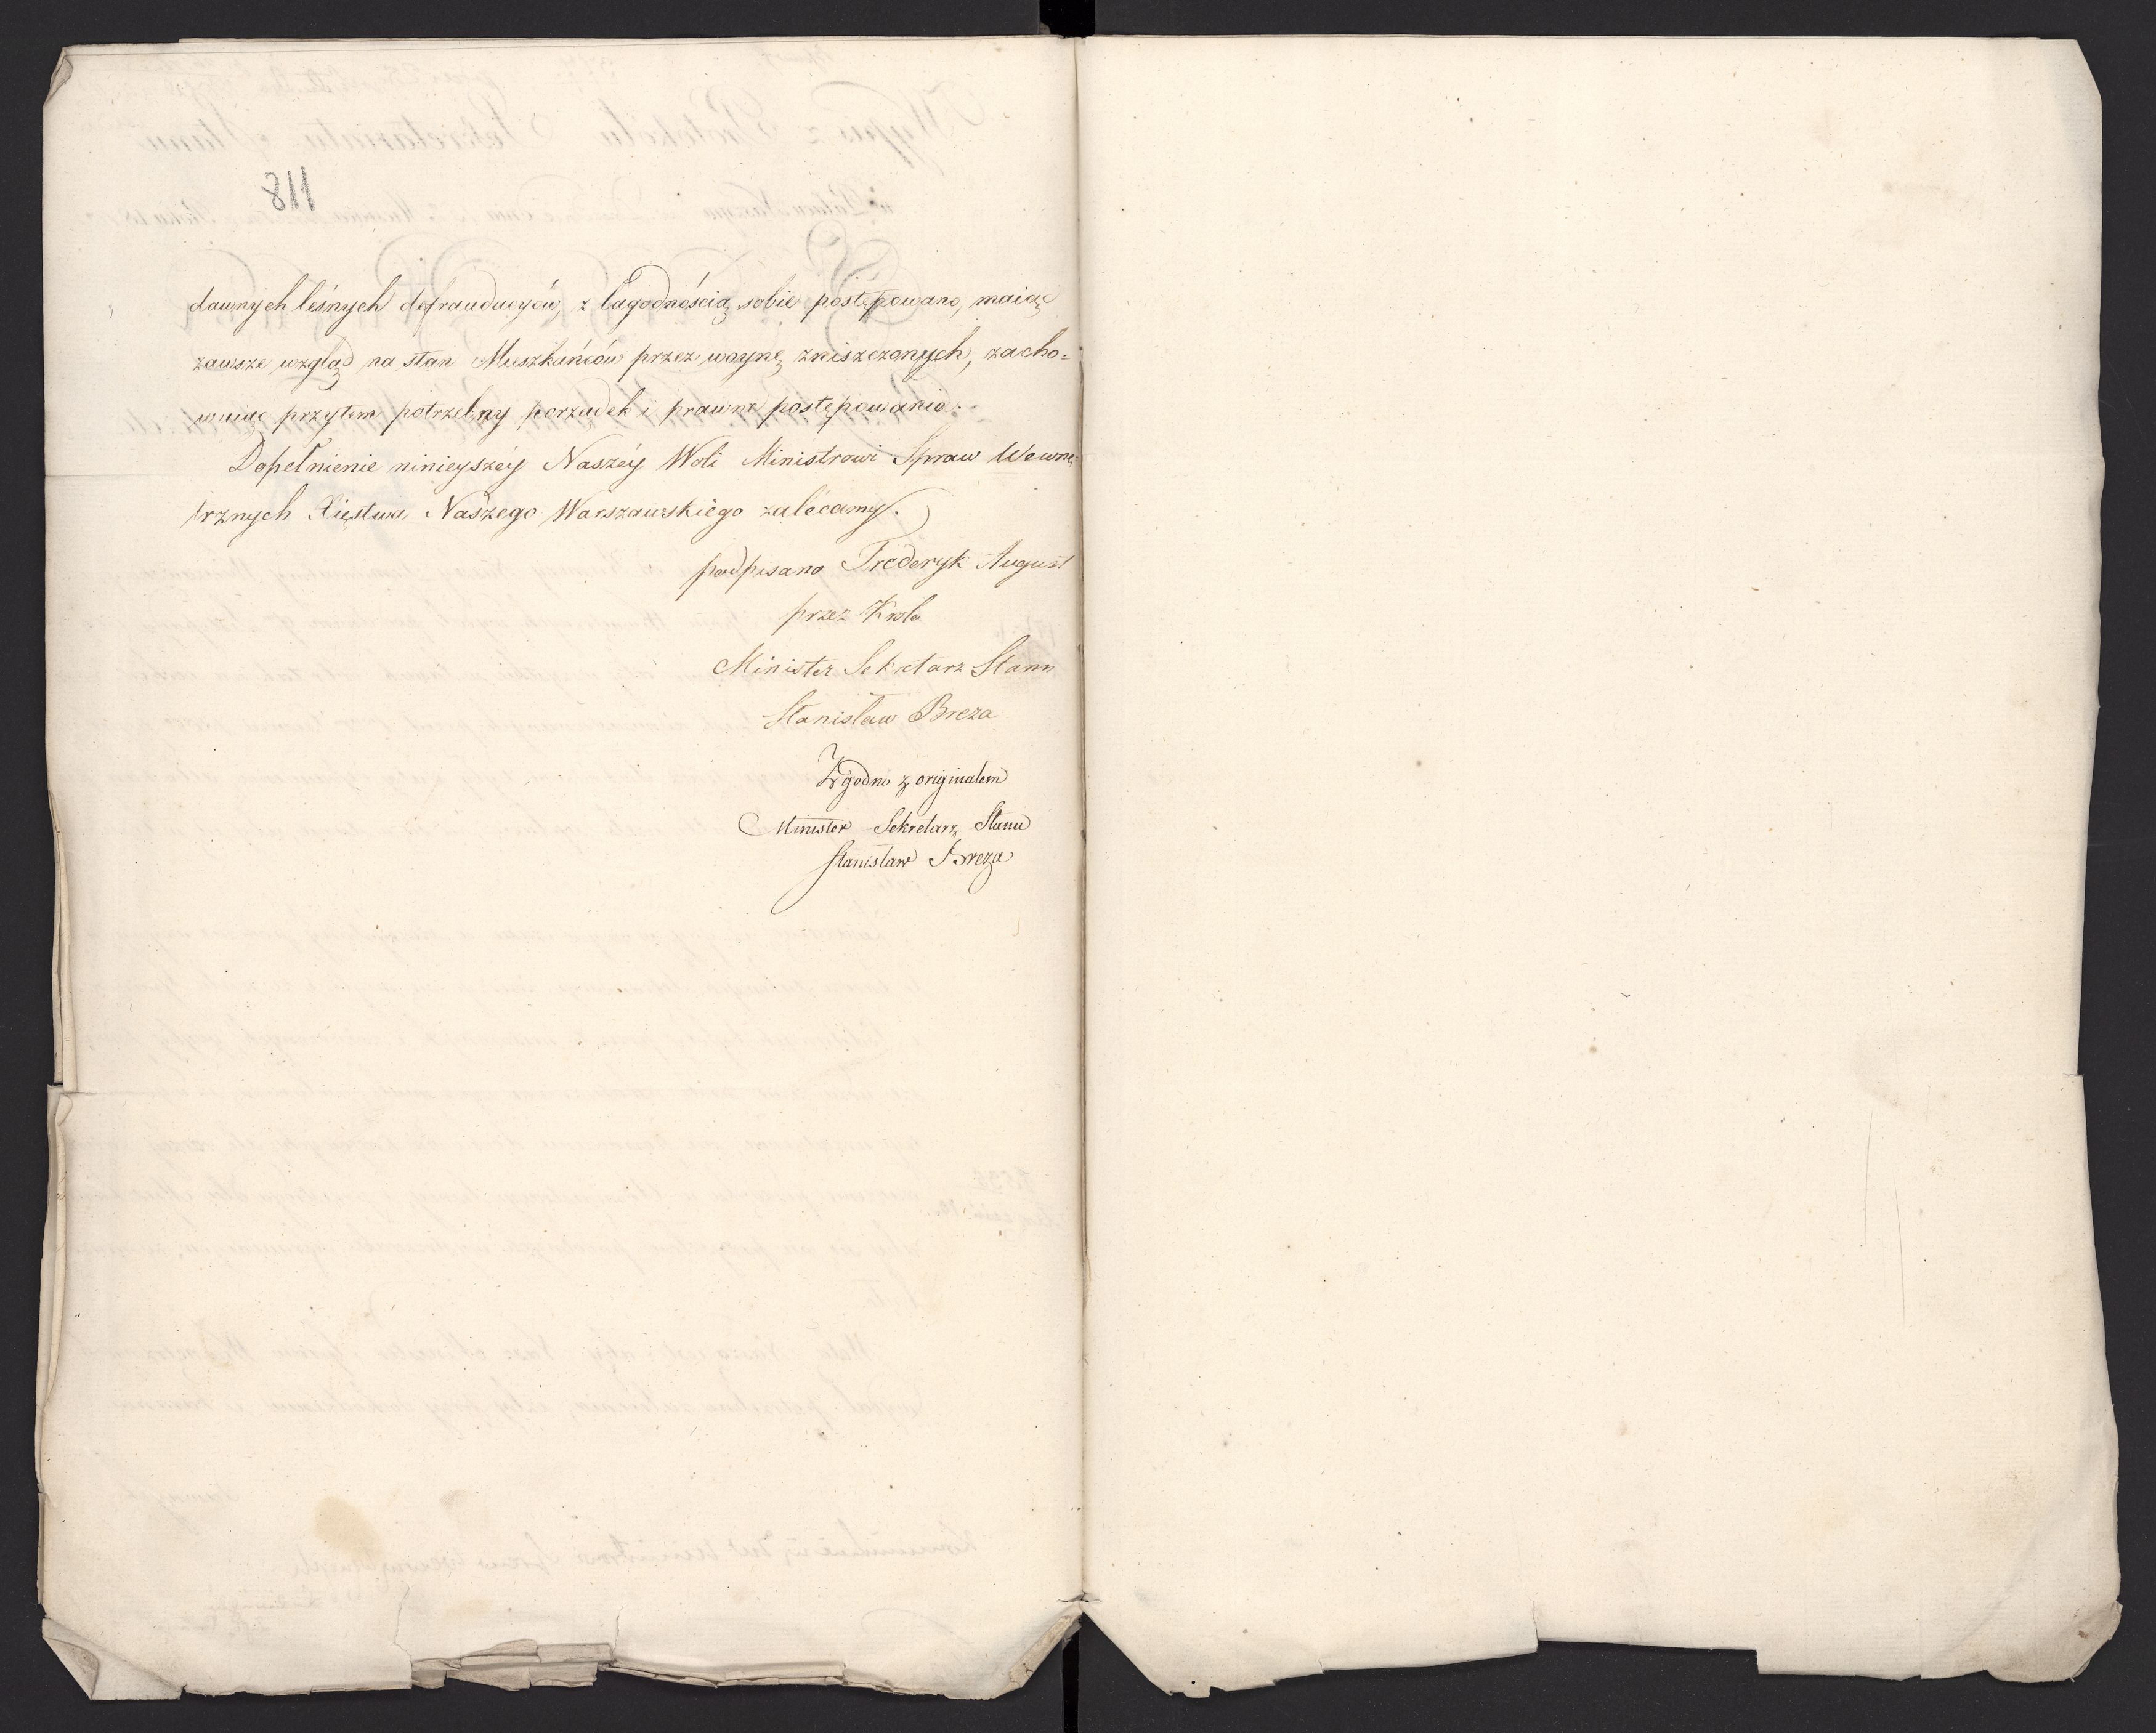 811
dawnych leśnych defraudacyów, z łagodnością sobie postępowano, maiąc
zawsze wzgląd na stan Mieszkańców przez woynę zniszczonych, zacho=
wuiąc przytem potrzebny porządek i prawne postępowanie.
Dopełnienie ninieyszéy Naszéy Woli Ministrowi Spraw Wewnę
trznych Xięstwa Naszego Warszawskiego zalécamy.
podpisano Frederyk August
przez Króla
Minister Sekretarz Stanu
Stanisław Breza
Zgodno z originałem
Minister Sekretarz Stanu
Stanisław Breza